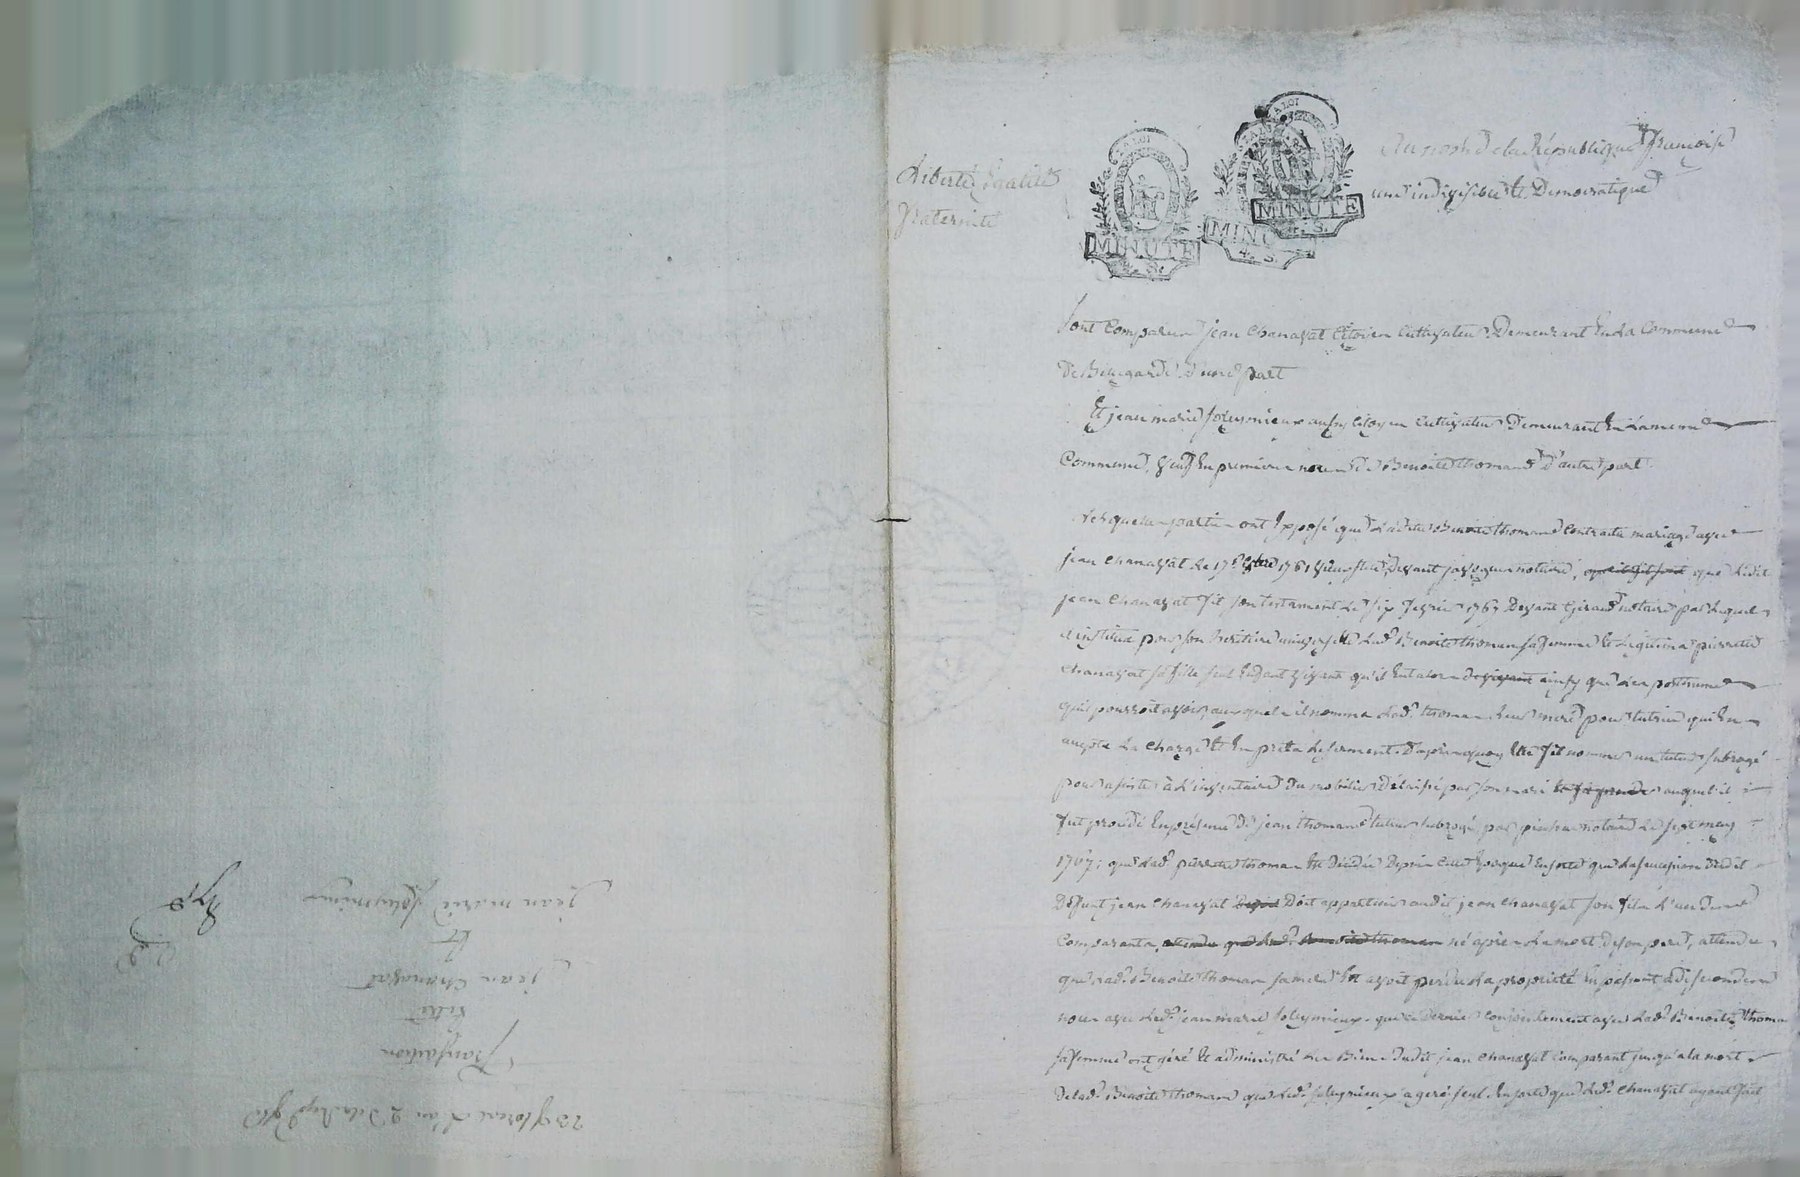 Liberté, Egalité
fraternité
LA LOI
MINUTE
4. S.
LA LOI
MINUTE
4. S.
MINUTE
4. S.
Au nom de la République françoise
une indivisible et Democratique
Sont Comparus jean Chanavat Citoien Cultivateur Demeurant En la Commune
De Bellegarde D'une part
Et jean marie soleymieux aussy Citoyen Cultivateur Demeurant En la meme
Commune, veuf En premieres noces de Benoite thomas D'autre part
Lesquelles parties ont Exposé que Ladite Benoite thomas Contracta mariage avec
jean Chanavat Le 17 1761 Devant notaire, que Ledit
jean Chanavat fit son testament Le six fevrier 1767 Devant Giraud notaire par Lequel
il institua pour son heritiere universelle Lad. Benoite thomas sa femme Et Légitima pierrette
Chanavat sa fille seul Enfant vivant qu'il Eut alors ainsy que Les posthumes
qu'il pourroit avoir, auxquels il nomma Lad. thomas Leur mere pour tutrice qui En
accepta La Charge Et En preta Le serment. D'apres quoy Elle fit nommer un tuteur subrogé
pour assister à L'inventaire Du mobilier Délaissé par son mari auquel il
fut procédé En présence De jean thomas tuteur subrogé, par notaire Le sept may
1767; que Lad. thomas Est Décédée Depuis Cette Epoque Ensorte que La succession Dudit
Défunt jean Chanavat Doit appartenir audit jean Chanavat son fils L'un Des
Comparants, né apres La mort De son pere, attendu
que Lad. Benoite thomas sa mere En avoit perdu La propriété En passant à De secondes
noces avec Led. jean marie soleymieux. que Ce Dernier Conjointement avec Lad. Benoite thomas
sa femme ont géré Et administré Les Biens Dudit jean Chanavat Comparant jusqu'a La mort
De Lad. Benoite thomas que Led. soleymieux a geré seul Ensorte que Led. Chanavat ayant fait
23 floreal L'an 2 De la Rep.
Transaction
Entre
jean Chanavat
Et
jean marie soleymieux